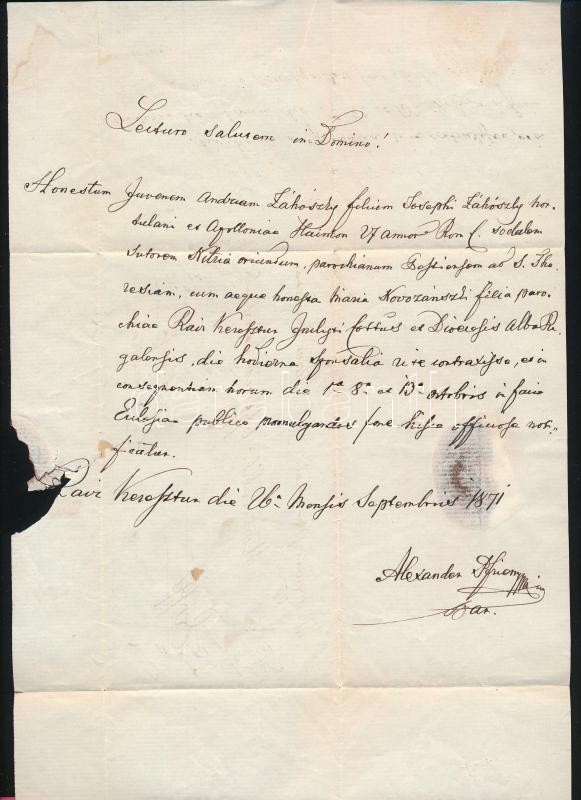 Lecturo salutem in Domino!
Honestum Juvenem Andream Zákószky filium Josephi Zákószky hor-
tulani et Apolloniae Haimon 27 annor Rom C. Sodalem
Sutorem Nitria oriundum, parochianum Pestiensem ad S. The-
resiam, cum aeque honesta Maria Novozánszki filia paro-
chiae Rátz Keresztur Inclyti Cottus et Diocesis Alba Re-
galensis, die hodierna sponsalia rite contraxisse, et in
consequentiam horum die 1a 8a et 15a octobris in facie
Eclesiae publice promulgandos fore hisce officiose not-
ficatur.
Keresztur die 26a Mensis Septembris 1871
Alexander
par.
darabanth